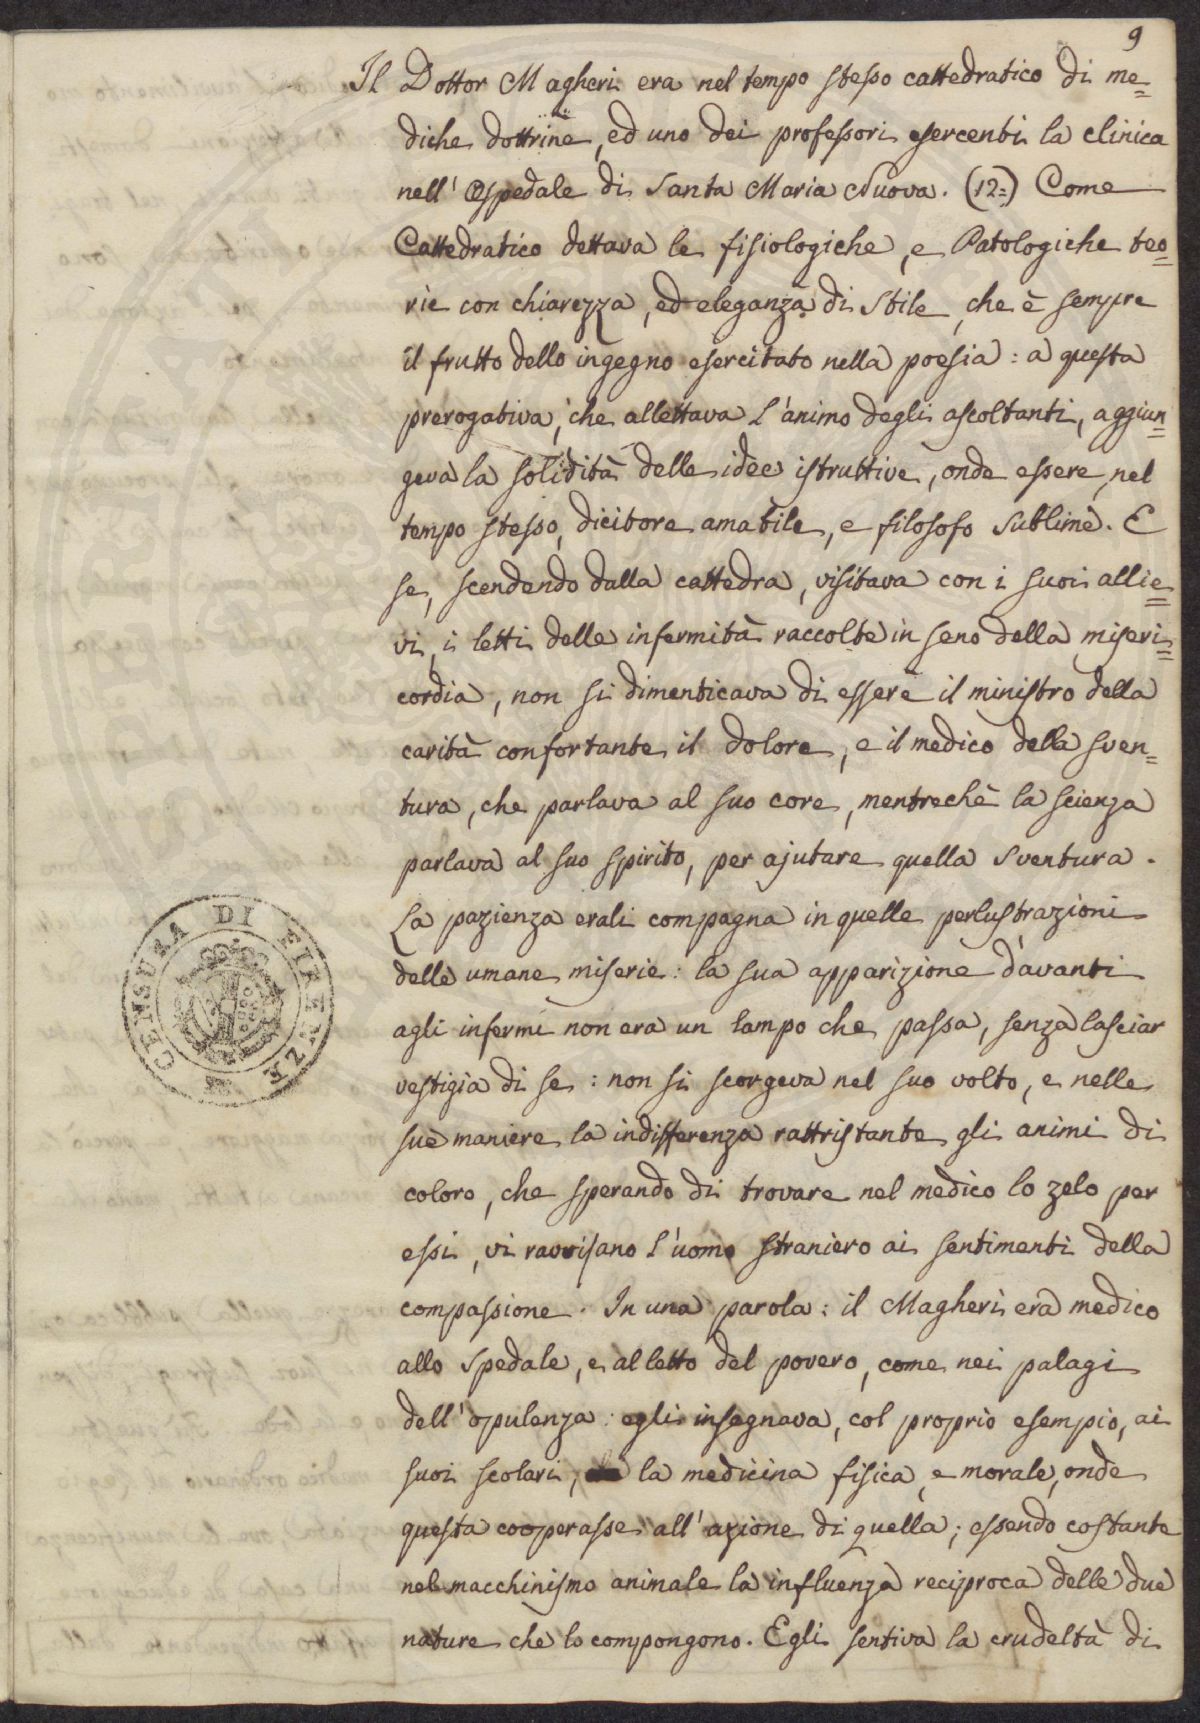 9
Il Dottor Magheri era nel tempo stesso cattedratico di me=
diche dottrine, ed uno dei professori esercenti la clinica
nell' Ospedale di Santa Maria Nuova. (12=) Come
Cattedratico dettava le fisiologiche, e Patologiche teo=
rie con chiarezza, ed eleganza di stile, che è sempre
il frutto dello ingegno esercitato nella poesia: a questa
prerogativa, che allettava l'animo degli ascoltanti, aggiun=
geva la solidità delle idee istruttive, onde essere, nel
tempo stesso, dicitore amabile, e filosofo sublime. E
se, scendendo dalla cattedra, visitava con i suoi allie=
vi, i letti delle infermità raccolte in seno della miseri=
cordia, non si dimenticava di essere il ministro della
carità confortante il dolore, e il medico della sven=
tura, che parlava al suo core, mentrechè la scienza
parlava al suo spirito, per ajutare quella sventura.
La pazienza erali compagna in quelle perlustrazioni
delle umane miserie: la sua apparizione davanti
agli infermi non era un lampo che passa, senza lasciar
vestigia di se: non si scorgeva nel suo volto, e nelle
sue maniere la indifferenza rattristante gli animi di
coloro, che sperando di trovare nel medico lo zelo per
essi, vi ravvisano l'uomo straniero ai sentimenti della
compassione. In una parola: il Magheri era medico
allo spedale, e al letto del povero, come nei palagi
dell'opulenza: egli insegnava, col proprio esempio, ai
suoi scolari, la medicina fisica, e morale, onde
questa cooperasse all'azione di quella; essendo costante
nel macchinismo animale la influenza reciproca delle due
nature che lo compongono. Egli sentiva la crudeltà di
CENSURA DI FIRENZE